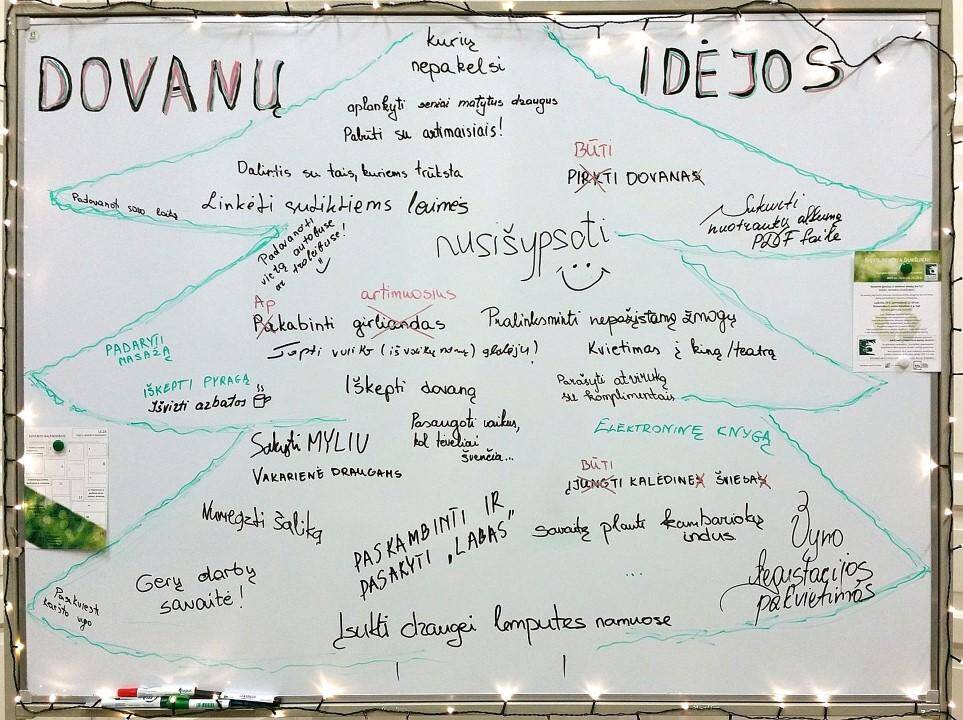 DOVANŲ
IDĖJOS
kurių
nepakelsi
aplankyti seniai matytus draugus
Pabūti su artimaisiais!
Dalintis su tais, kuriems trūksta
BŪTI
PIRKTI DOVANAS
Padovanoti savo laiką
Linkėti sutiktiems laimės
Padovanoti
vietą autobuse
ar troleibuse!
nusišypsoti
Sukurti
nuotraukų albumą
PDF faile
Ap
artimuosius
Pakabinti girliandas
Pralinksminti nepažįstamą žmogų
PADARYTI
MASAŽĄ
Tapti vaiko (iš vaikų namų) globėju!
Kvietimas į kiną/teatrą
IŠKEPTI PYRAGĄ
Išvirti arbatos
Iškepti dovaną
Parašyti atviruką
su komplimentais
Pasaugoti vaikus,
kol tėveliai
švenčia...
Sakyti MYLIU
VAKARIENĖ DRAUGAMS
ELEKTRONINĘ KNYGĄ
BŪTI
ĮJUNGTI KALĖDINES ŠVIESAS
Numegzti šaliką
PASKAMBINTI IR
PASAKYTI „LABAS“
savaitę plauti kambariokų
indus
...
Vyno
degustacijos
pakvietimas
Gerų darbų
savaitė!
Pasikviest
karšto vyno
Įsukti draugei lemputes namuose